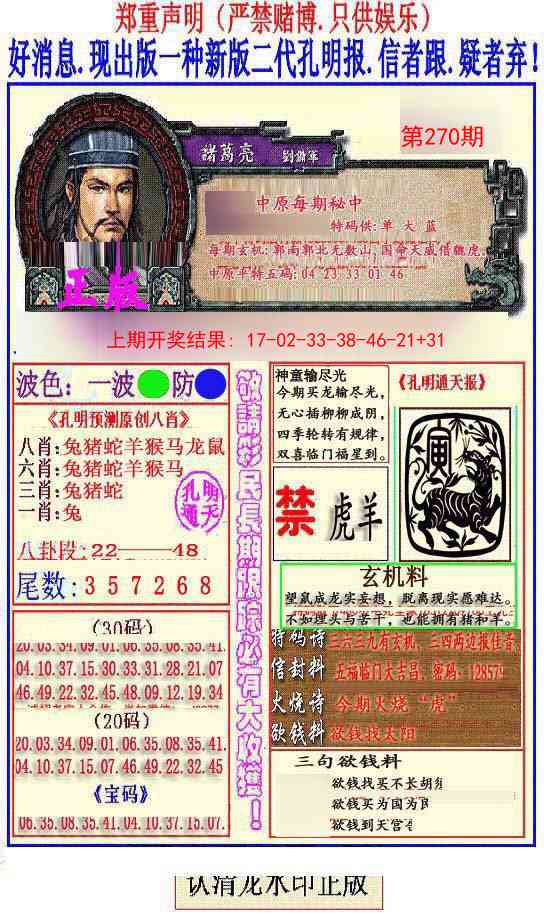 郑重声明（严禁赌博.只供娱乐）
好消息.现出版一种新版二代孔明报.信者跟.疑者弃！
第270期
諸葛亮
劉備軍
中原每期秘中
特码供:单 大 蓝
每期玄机:郭南郭北无数山,国命天威借魏虎.
中原平特五码:04 23 33 01 46
正版
上期开奖结果: 17-02-33-38-46-21+31
波色: 一波 防
《孔明预测原创八肖》
八肖:兔猪蛇羊猴马龙鼠
六肖:兔猪蛇羊猴马
三肖:兔猪蛇
一肖:兔
孔明
通天
八卦段:22——48
尾数:357268
(30码)
20.03.34.09.01.06.35.08.35.41.
04.10.37.15.30.33.31.28.21.07
46.49.22.32.45.48.09.12.19.34
(20码)
20.03.34.09.01.06.35.08.35.41.
04.10.37.15.07.46.49.22.32.45
《宝码》
06.35.08.35.41.04.10.37.15.07.
敬請彩民長期跟踪必有大收獲！
神童输尽光
今期买龙输尽光,
无心插柳柳成阴,
四季轮转有规律,
双喜临门福星到.
《孔明通天报》
寅
禁
虎羊
玄机料
望鼠成龙实妄想, 脱离现实愿难达。
不如埋头与苦干, 也能拥有猪和羊。
特码诗
三六三九有玄机, 三四两边报佳音
信封料
五福临门大吉昌; 密码: 12857
火烧诗
今期火烧“虎”
欲钱料
欲钱找太阳
三句欲钱料
欲钱找买不长胡
欲钱买为国为
欲钱到天宫
认清龙水印正版